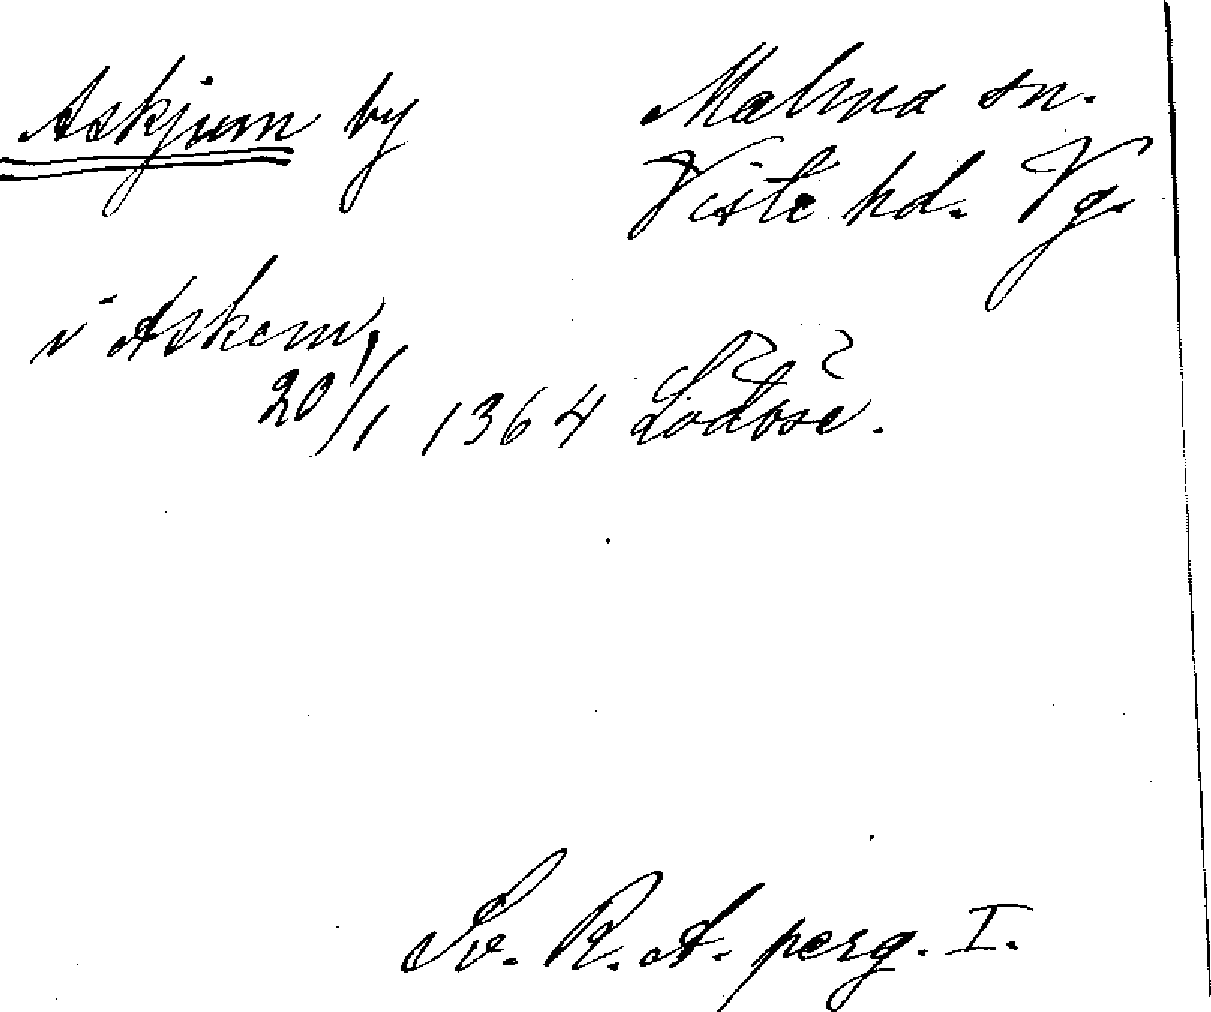 Askjum by
Malma sn.
Viste hd. Vg.
i Askem,
20/1 1364 Lödöse.
Sv. R. A. perg. I.